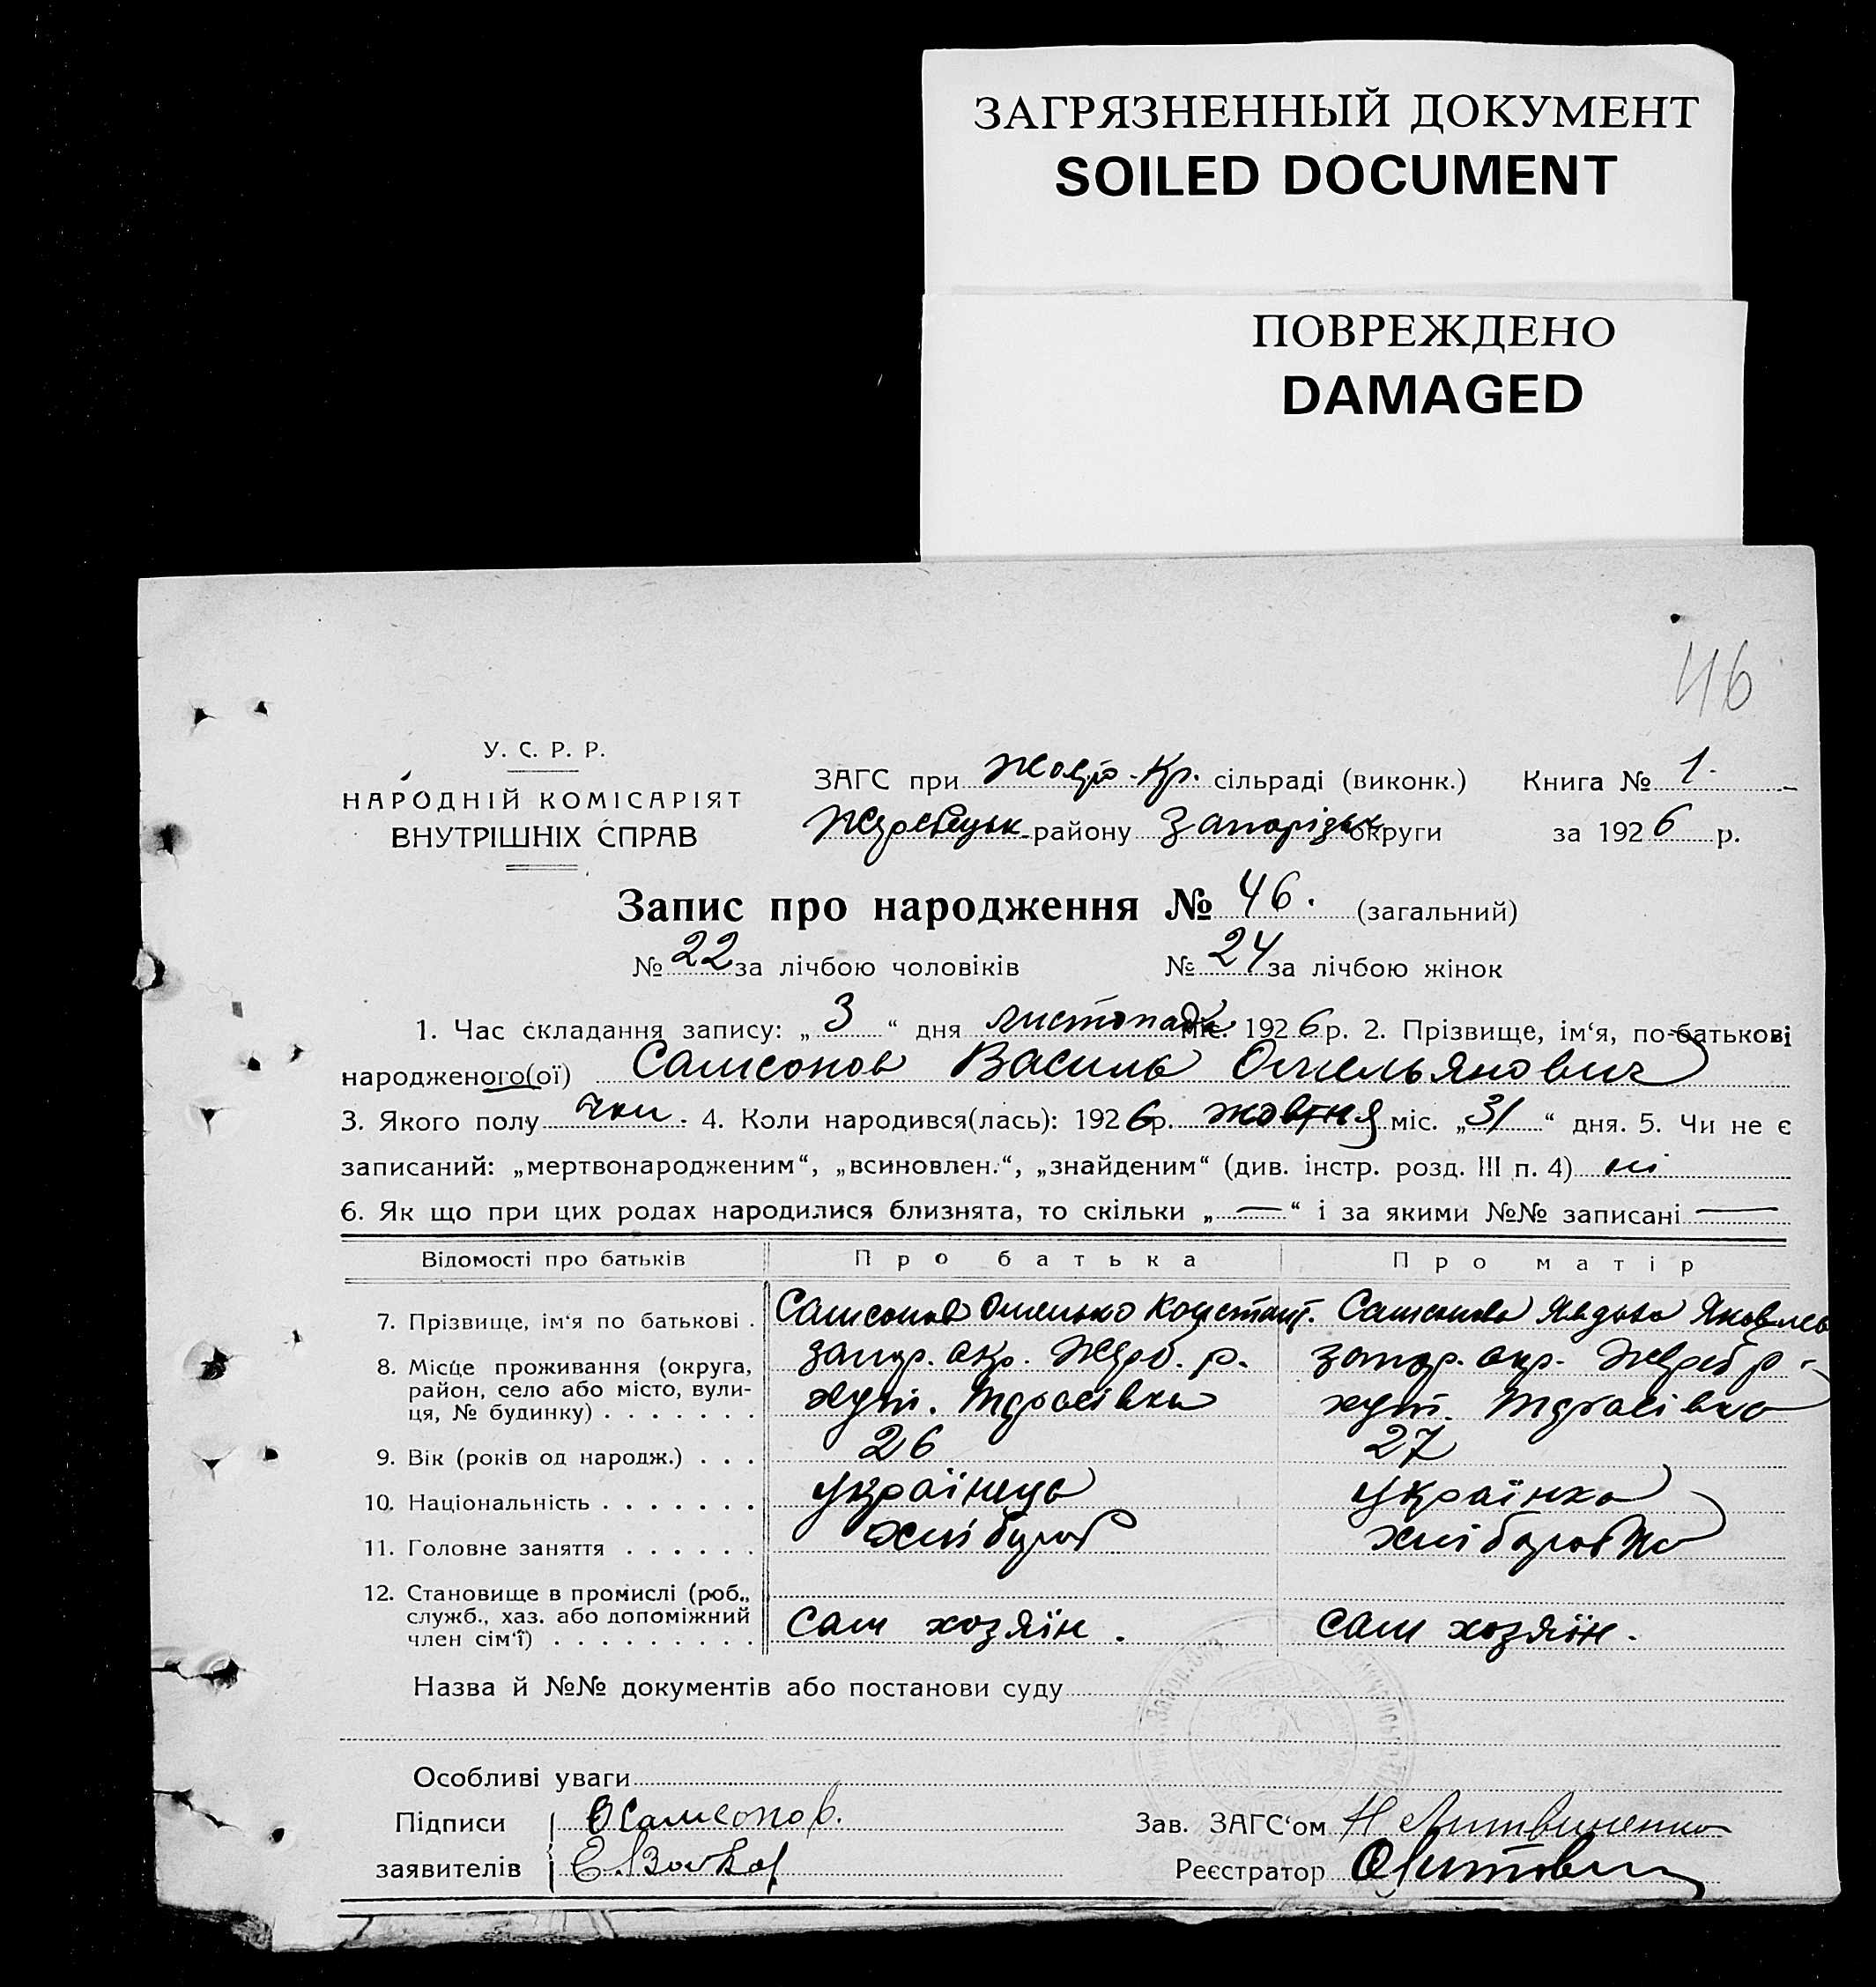 ЗАГРЯЗНЕННЫЙ ДОКУМЕНТ
SOILED DOCUMENT
ПОВРЕЖДЕНО
DAMAGED
46
У. С. Р. Р.
НАРОДНІЙ КОМІСАРІЯТ
ВНУТРІШНІХ СПРАВ
ЗАГС при Жовто-Кр. сільраді (виконк.) Книга № 1.
Жеребецьк району Запорізьк округи за 1926 р.
Запис про народження № 46. (загальний)
№ 22 за лічбою чоловіків № 24 за лічбою жінок
1. Час складання запису: „ 3 “ дня листопада міс. 1926 р. 2. Прізвище, ім‘я, по-батькові
народженого(ої) Самсонов Василь Омельянович
3. Якого полу чол. 4. Коли народився(лась): 1926 р. жовтня міс. „ 31 “ дня. 5. Чи не є
записаний: „мертвонародженим“, „всиновлен.“, „знайденим“ (див. інстр. розд. III п. 4) ні
6. Як що при цих родах народилися близнята, то скільки „ — “ і за якими №№ записані —
Відомості про батьків Про батька Про матір
7. Прізвище, ім‘я по батькові . Самсонов Омелько Констант. Самсонова Явдоха Яковлев
8. Місце проживання (округа, район, село або місто, вулиця, № будинку) . . . . . . .
Запор. окр. Жереб. р. Запор. окр. Жереб р.
хут. Тарасівка хут. Тарасівка
9. Вік (років од народж.) . . . 26 27
10. Національність . . . . . . . українець українка
11. Головне заняття . . . . . . хлібороб хліборобка
12. Становище в промислі (роб., служб., хаз. або допоміжний член сім‘ї) . . . . . . . . . сам хозяїн. сам хозяїн.
Назва й №№ документів або постанови суду
Особливі уваги
Підписи О Самсонов. Зав. ЗАГС‘ом Н Литвиненко
заявителів Реєстратор